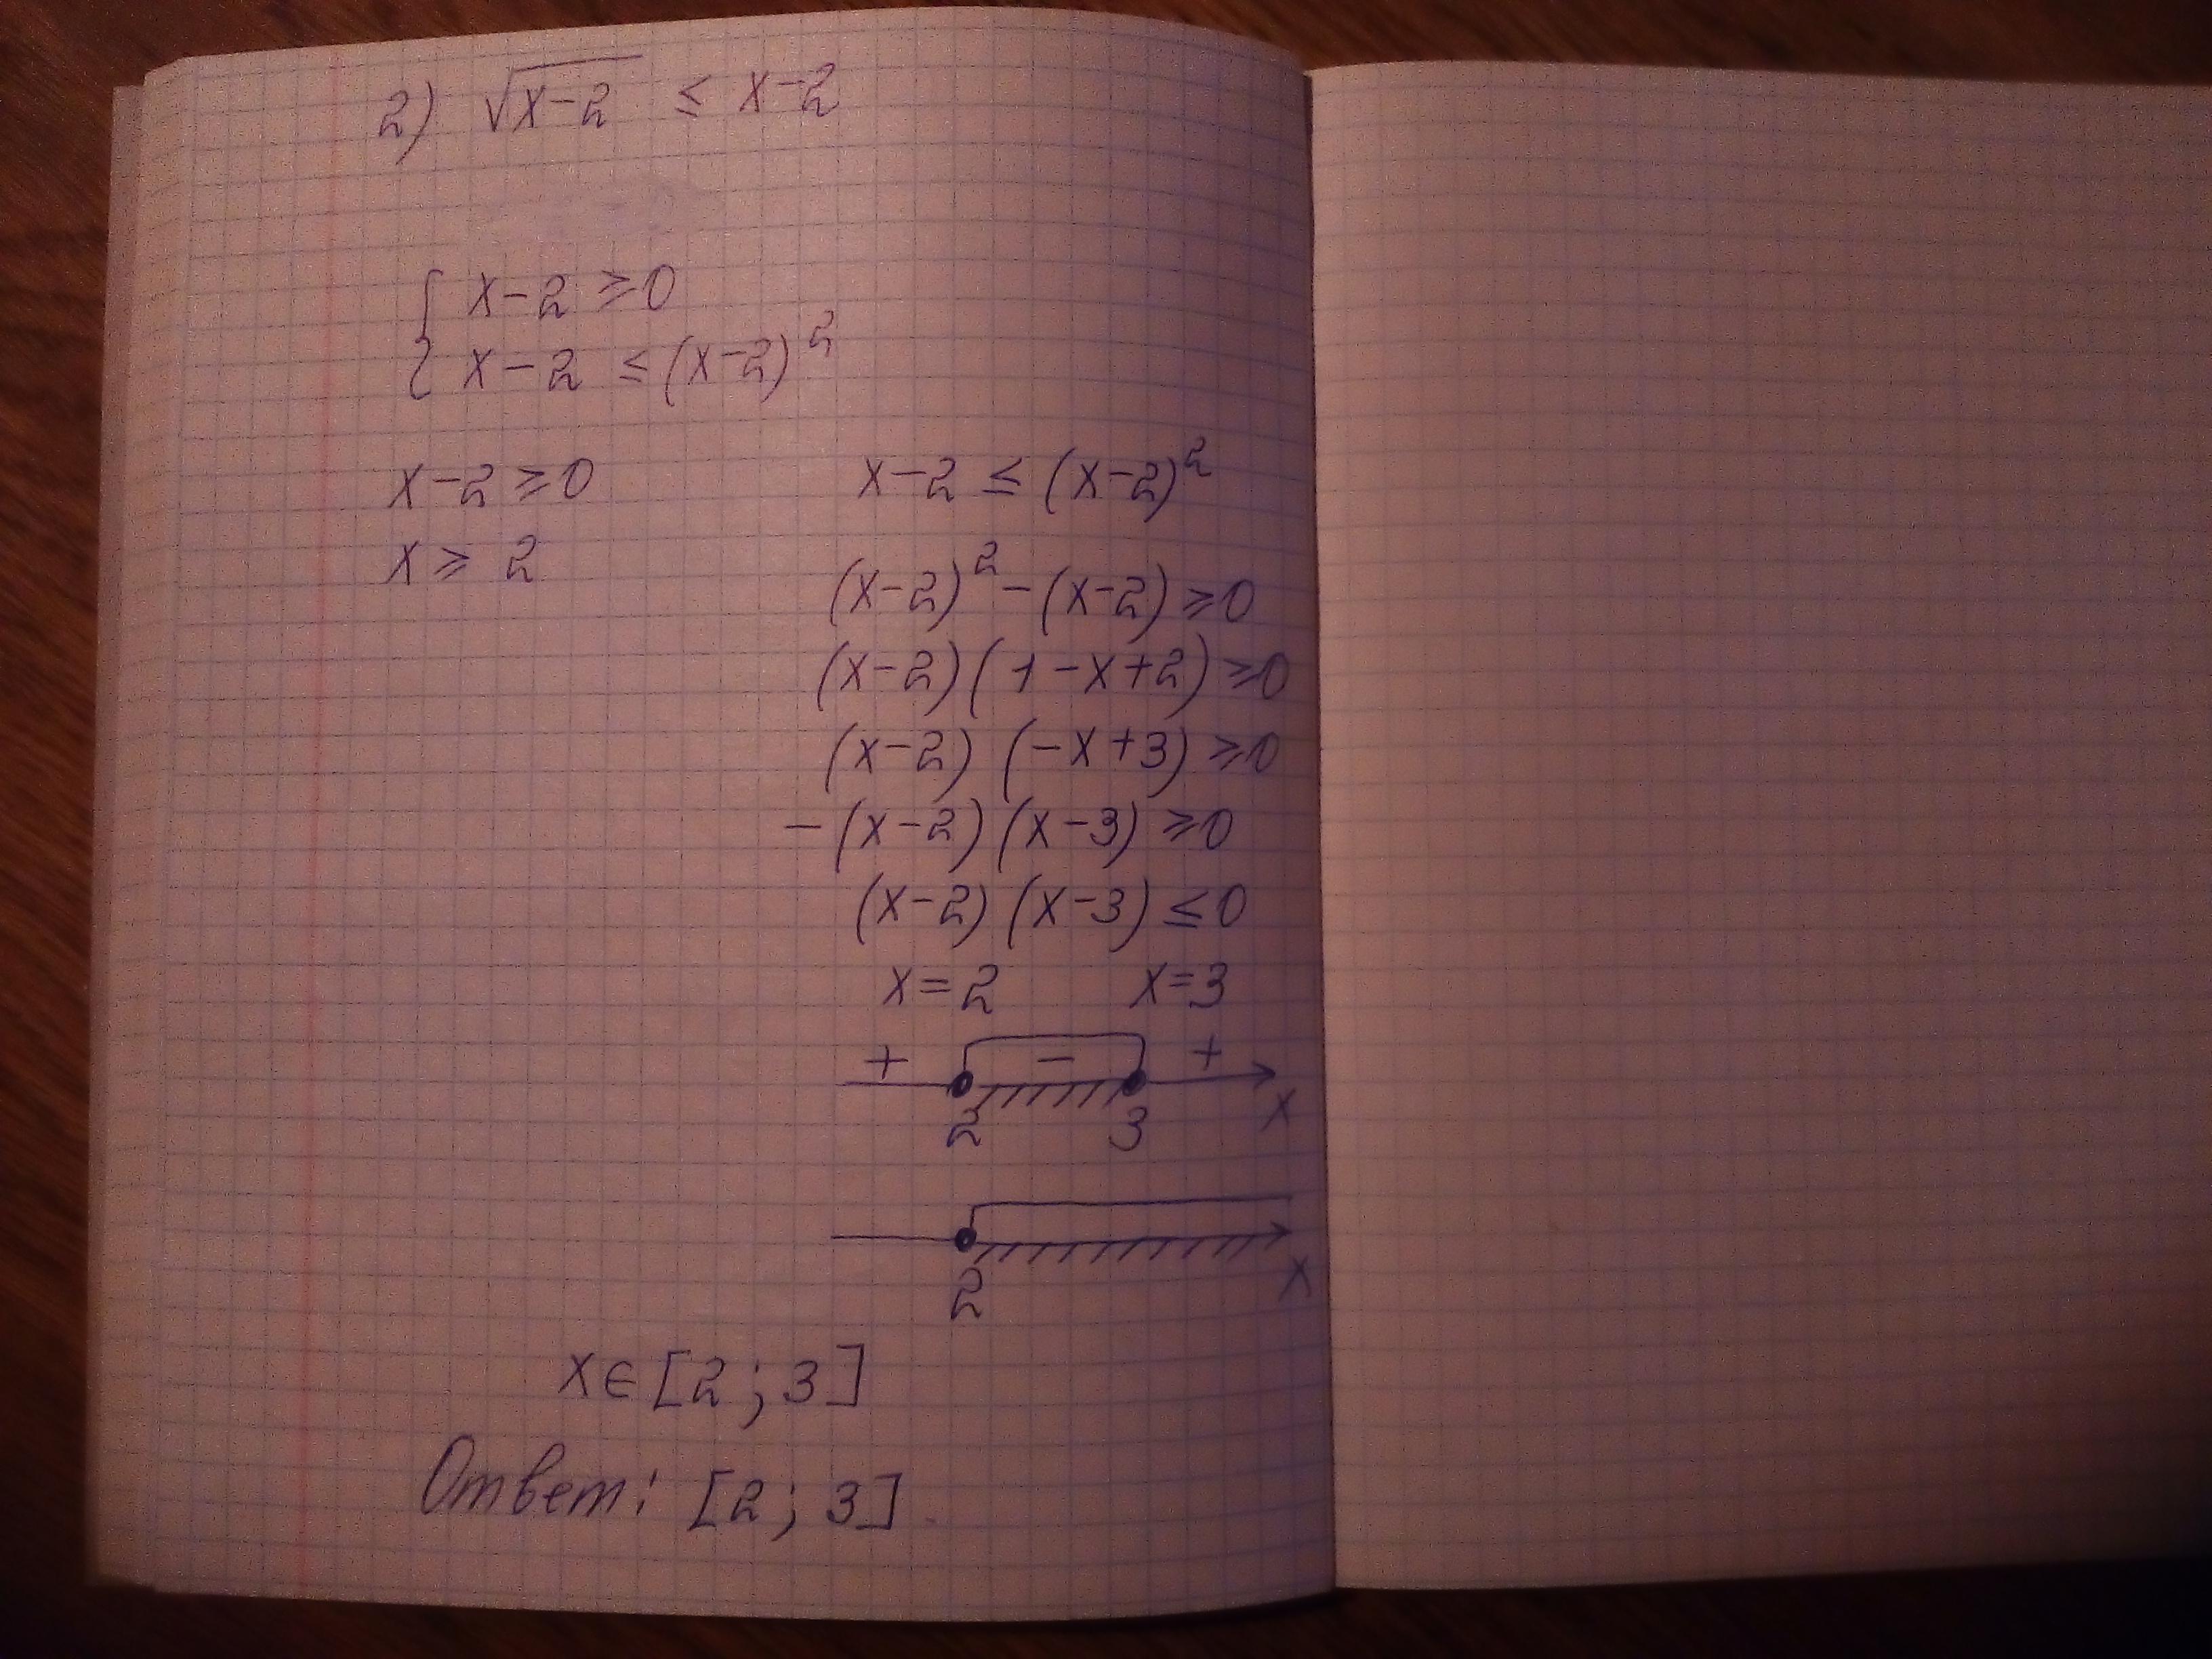 2) √x-2 ≤ x-2
{ x-2 ≥0
x-2 ≤(x-2)²
x-2 ≥0
x ≥ 2
x-2 ≤ (x-2)²
(x-2)² -(x-2) ≥0
(x-2)(1-x+2) ≥0
(x-2) (-x+3) ≥0
-(x-2)(x-3) ≥0
(x-2)(x-3) ≤0
x=2 x=3
+ - +
2 3 x
2 x
x∈[2;3]
Ответ: [2;3].